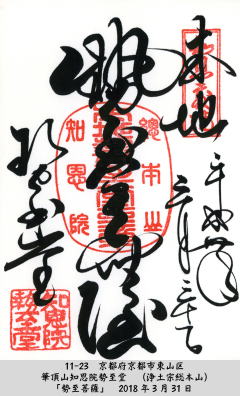 本地
平成卅年
三月三十一日
勢至菩薩
勢至堂
總本山
知恩院
知恩院
勢至堂
11-23 京都府京都市東山区
華頂山知恩院勢至堂 (浄土宗総本山)
「勢至菩薩」 2018年3月31日